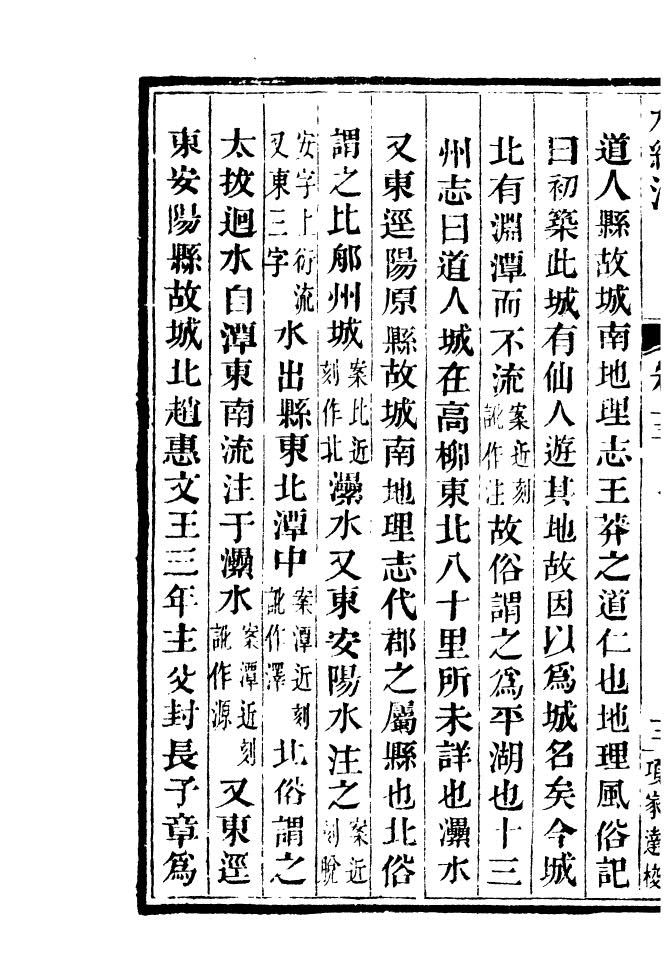 水經注 卷十三 三 項家達校
道人縣故城南地理志王莽之道仁也地理風俗記
曰初築此城有仙人遊其地故因以爲城名矣今城
北有淵潭而不流案近刻訛作注故俗謂之爲平湖也十三
州志曰道人城在高柳東北八十里所未詳也㶟水
又東逕陽原縣故城南地理志代郡之屬縣也北俗
謂之比郍州城案比近刻作北㶟水又東安陽水注之案近刻脫
安字上衍流又東三字水出縣東北潭中案潭近刻訛作澤北俗謂之
太拔迴水自潭東南流注于㶟水案潭近刻訛作源又東逕
東安陽縣故城北趙惠文王三年主父封長子章爲